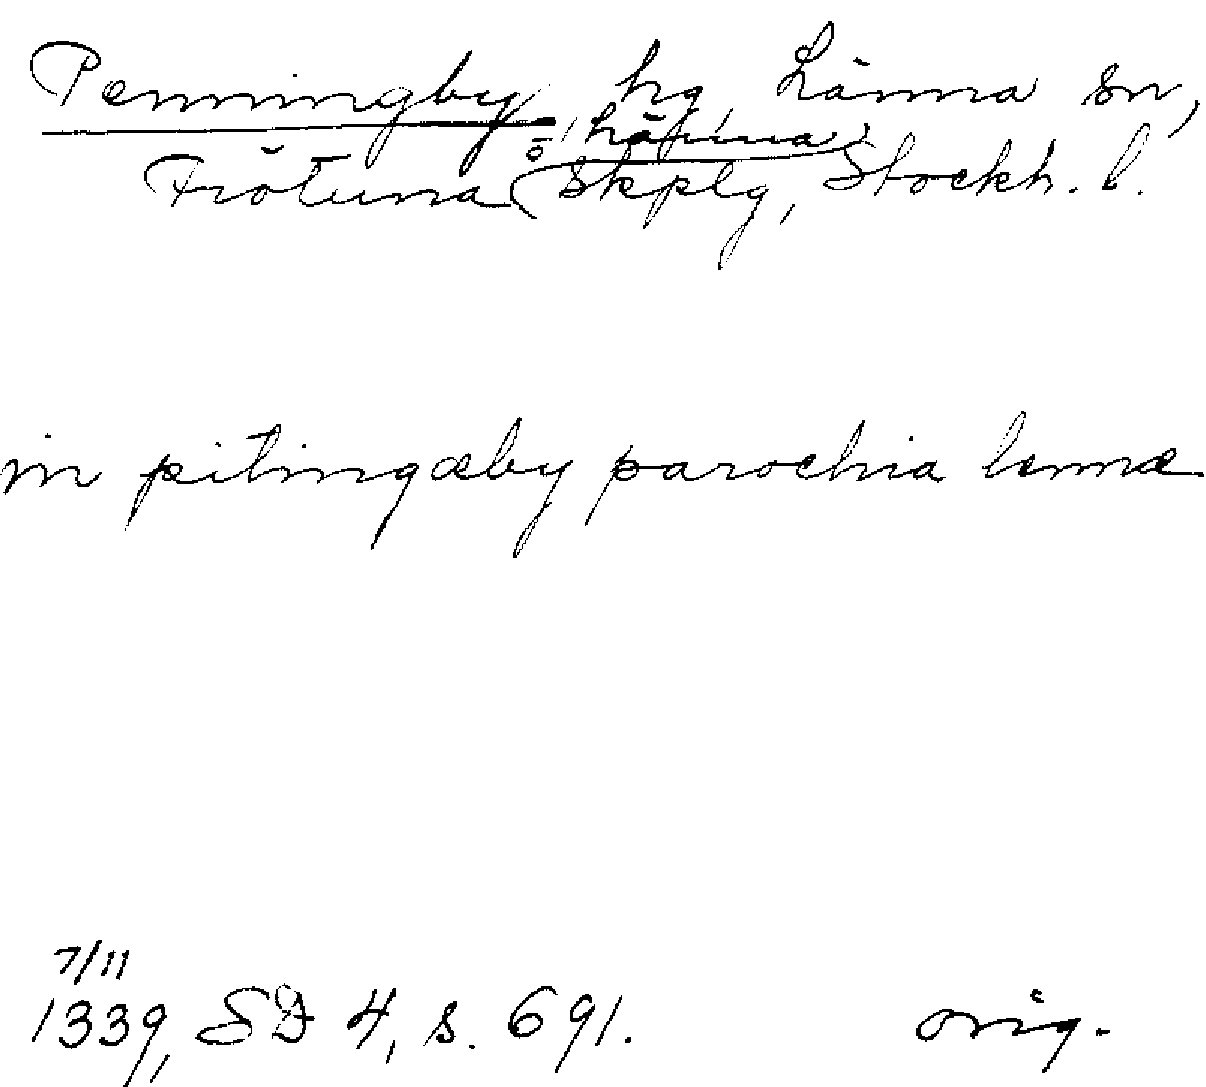 Penningby, hg, Länna sn,
o. Länna
Frötuna skplg, Stockh. l.
in pitingæby parochia lennæ
7/11
1339, SD 4, s. 691. orig.